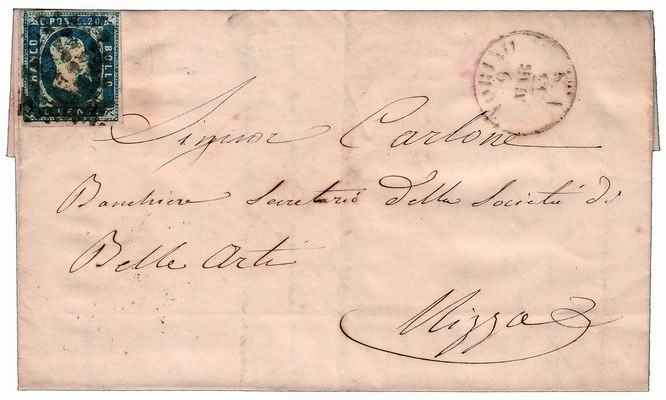 C. POSTE. 20
FRANCO
BOLLO
C. VENTI
TORINO
9
MAR
53
Signor Carlone
Banchiere Secretario della Società di
Belle Arti
Nizza